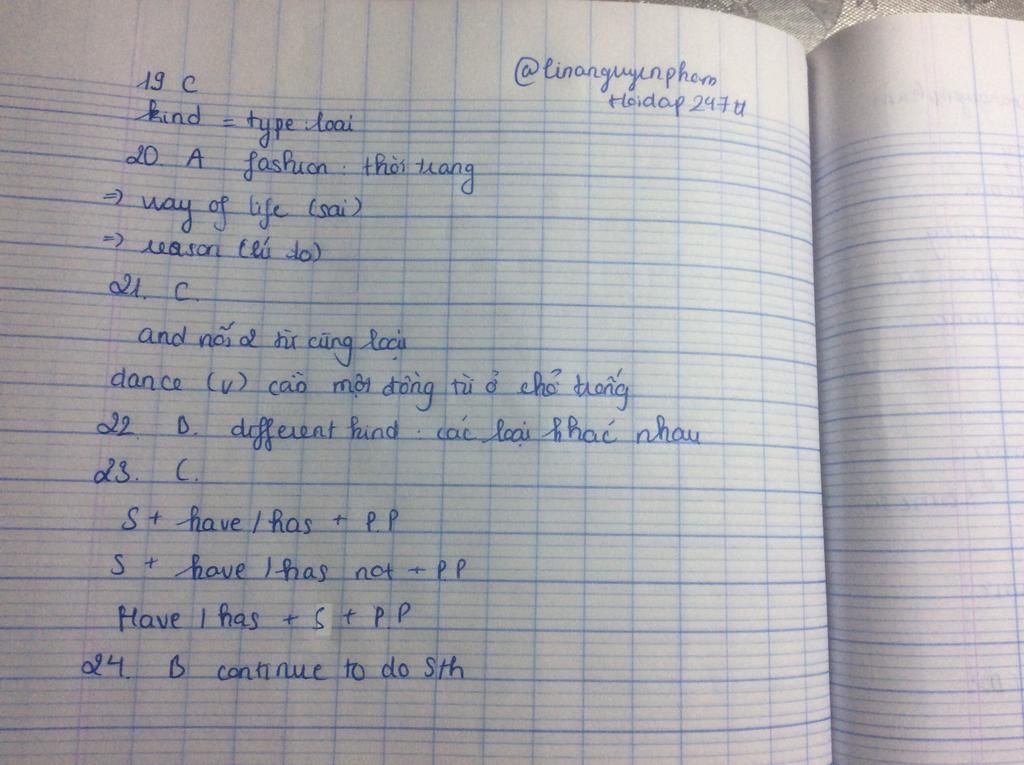 @linanguyenpham
Hoidap247
19 C
kind = type: loại
20 A fashion: thời trang
=> way of life (sai)
=> reason (lí do)
21. C.
and nối 2 từ cùng loại
dance (v) cần một động từ ở chỗ trống
22. D. different kind: các loại khác nhau
23. C.
S + have / has + P.P
S + have / has not + P P
Have / has + S + P.P
24. B continue to do sth